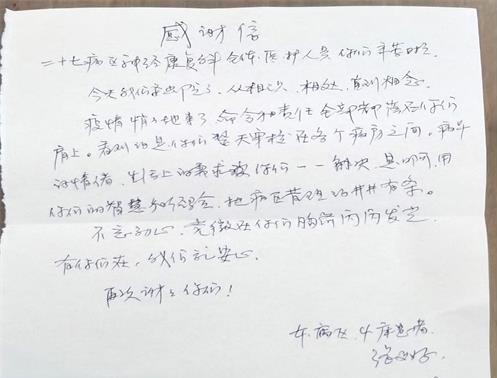 感谢信
二十七病区神经康复科全体医护人员你们辛苦啦
今天我们要出院了，从相识、相处，直到相念。
疫情悄悄地来了命令和责任全部都落在你们
肩上。看到的是你们整天穿梭在各个病房之间。病人
的情绪，生活上的需求被你们一一解决，是你们用
你们的智慧和 把病区管理的井井有条。
不忘初心，党徽在你们胸前闪闪发光
有你们在，我们就安心。
再次谢谢你们！
本病区 4床患者